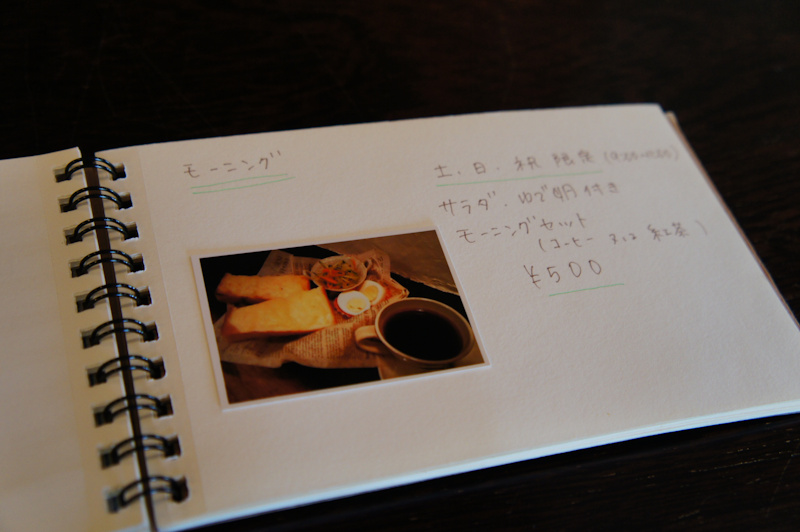 モーニング
土、日、祝 限定
サラダ・ゆで卵 付き
モーニングセット
(コーヒー または 紅茶)
¥500